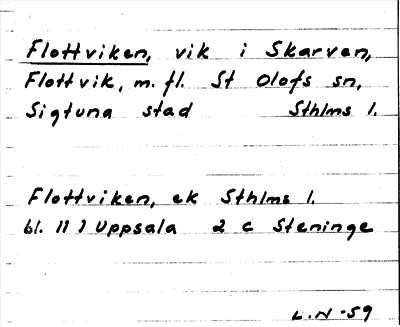 Flottviken, vik i Skarven,
Flottvik, m. fl. St Olofs sn,
Sigtuna stad Sthlms l.
Flottviken, ek Sthlms l.
bl. 11 I Uppsala 2 c Steninge
L.N -59